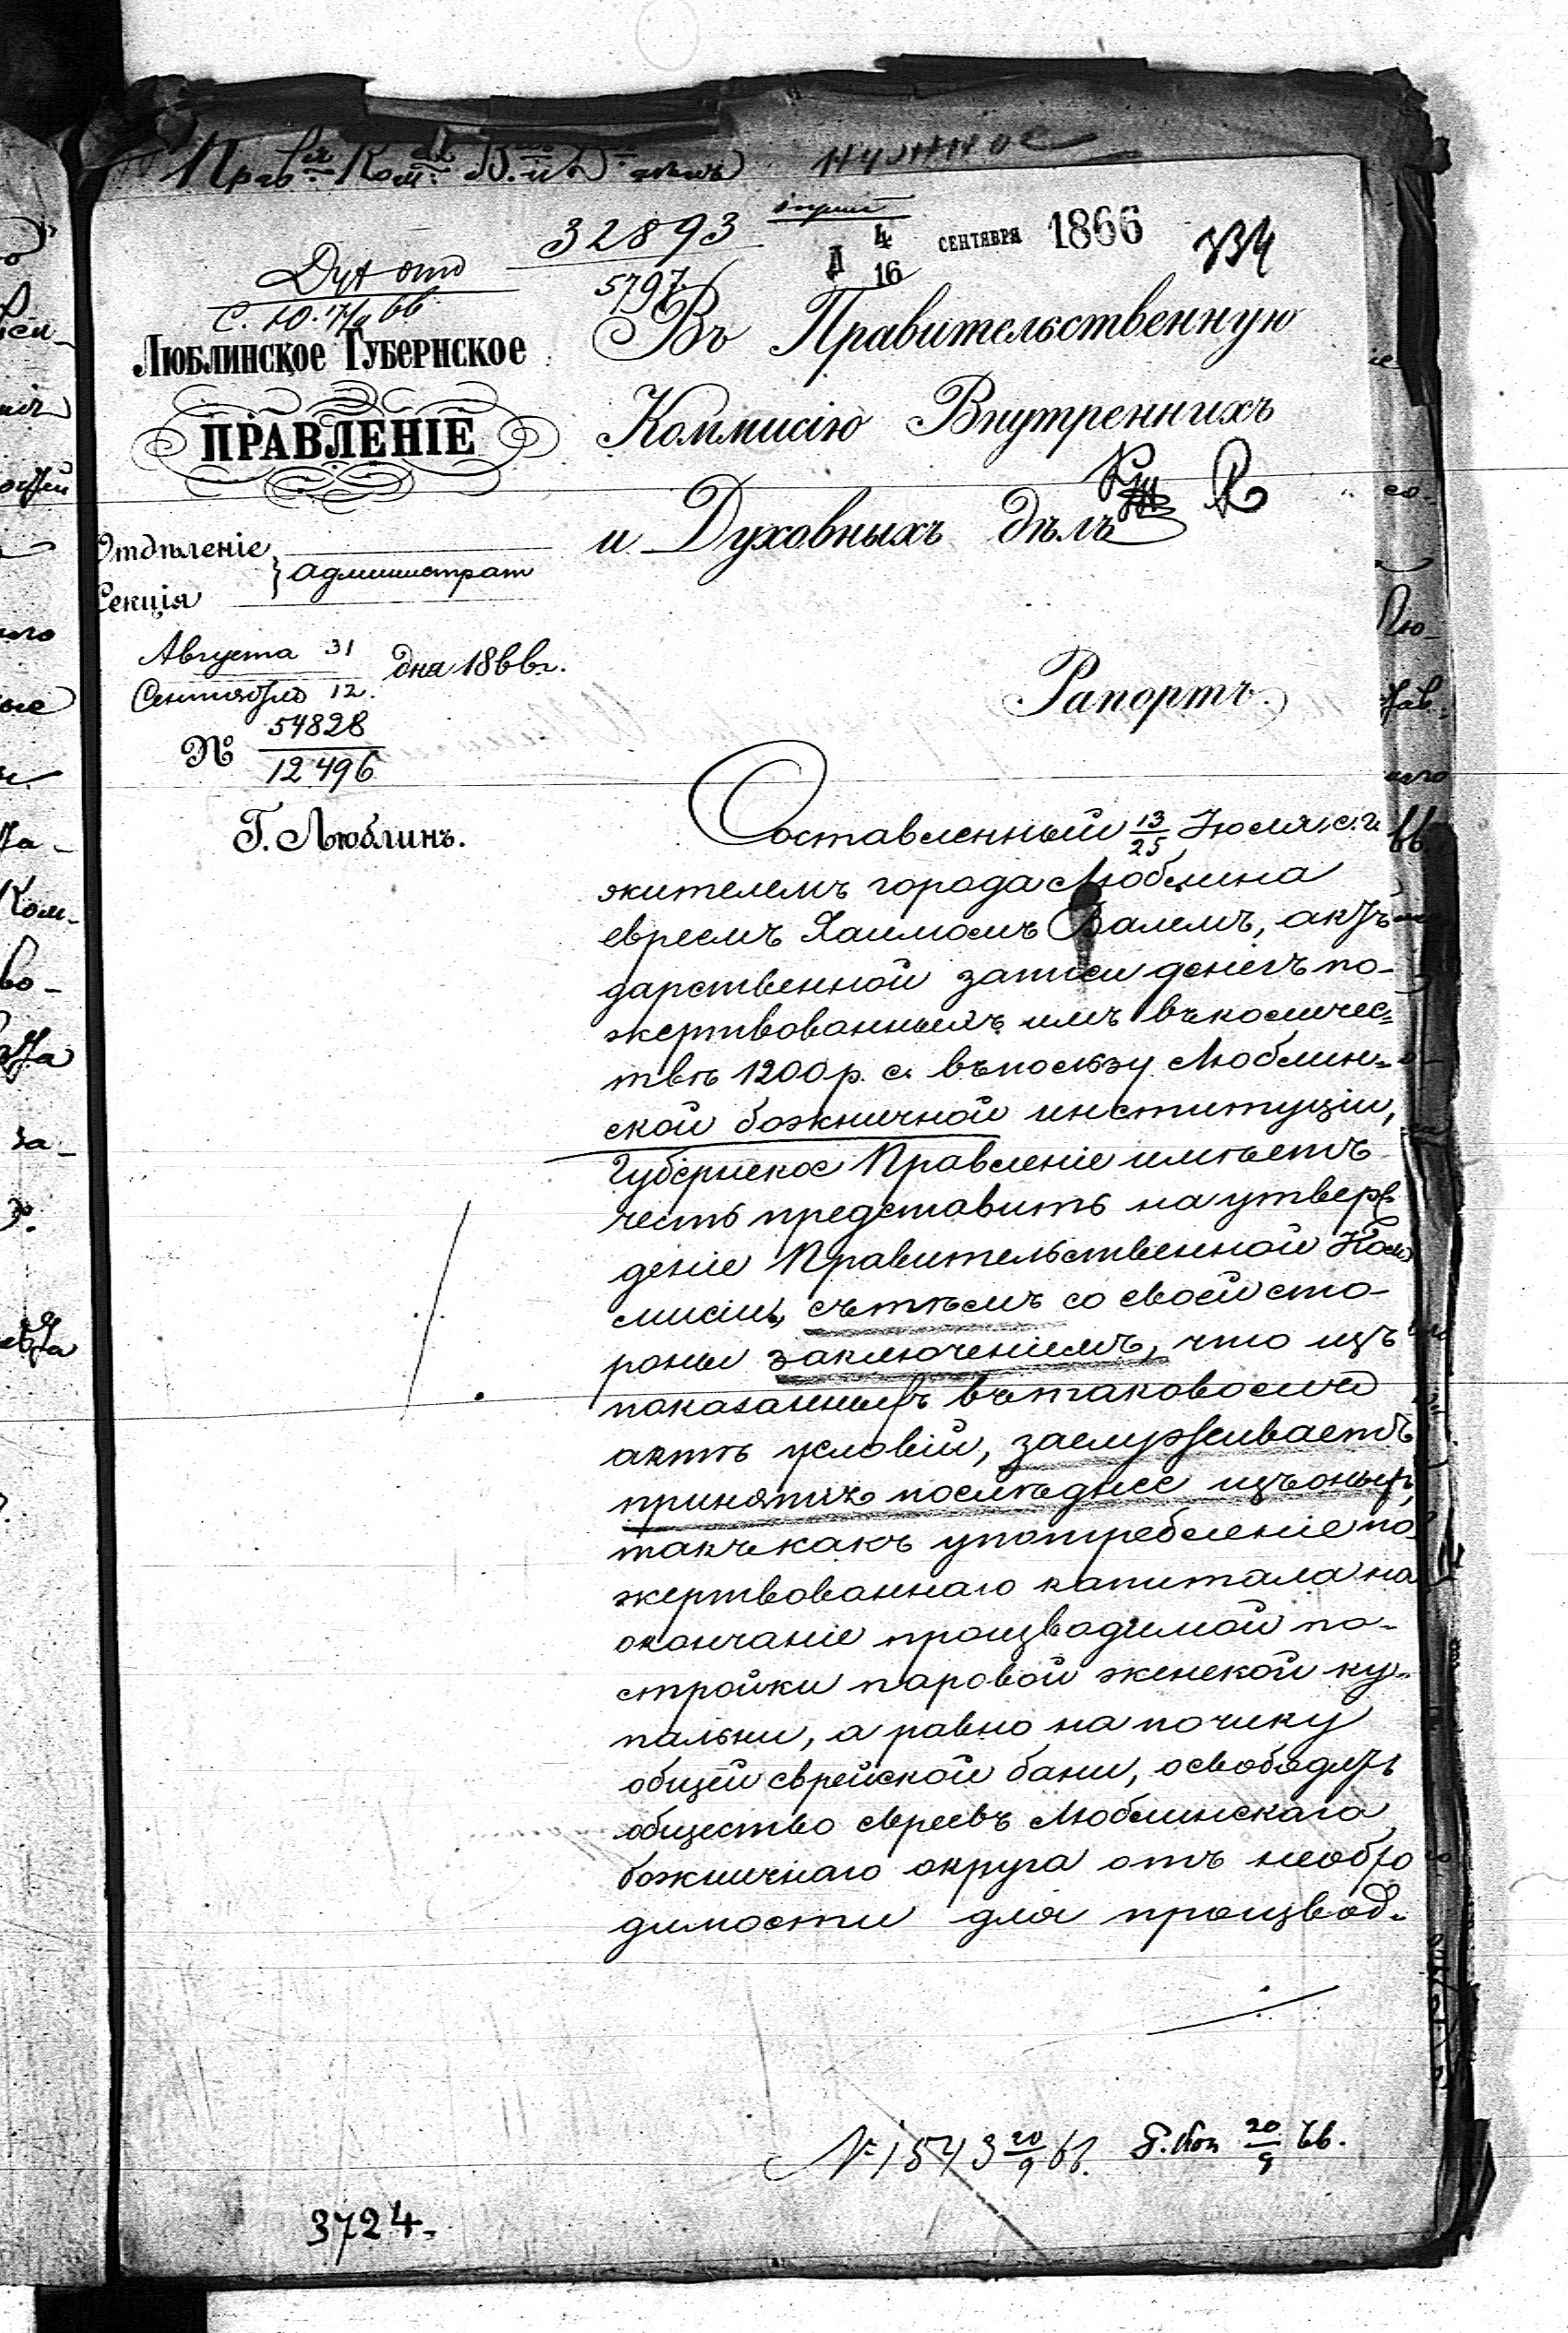 32893
5797
4
16
СЕНТЯБРЯ 1866
334
ЛЮБЛИНСКОЕ ГУБЕРНСКОЕ
ПРАВЛЕНІЕ
Отдѣленіе
Администрат
Секція
Августа 31
Сентября 12.
дня 1866г.
№ 54828
12496
Г. Люблинъ.
Въ Правительственную
Коммисію Внутреннихъ
и Духовныхъ дѣлъ
Рапортъ.
Составленный 13/25 Іюля с. г.
жителемъ города Люблина
евреемъ Хаимомъ Валемъ, актъ
дарственной записи денегъ по-
жертвованныхъ имъ въ количес=
твѣ 1200 р. с. въ пользу Люблин=
ской божничной институціи,
Губернское Правленіе имѣетъ
честь представить на утверж
деніе Правительственной Ком
мисіи, съ тѣмъ со своей сто-
роны заключеніемъ, что изъ
показанныхъ въ таковомъ
актѣ условій, заслуживаетъ
принятія послѣднее изъ оныхъ,
такъ какъ употребленіе по
жертвованнаго капитала на
окончаніе производимой по-
стройки паровой женской ку-
пальни, а равно на починку
общей еврейской бани, освободитъ
общество евреевъ Люблинскаго
божничнаго округа отъ необхо
димости для производ-
№ 1543 20/9 66. 20/9 66.
3724.